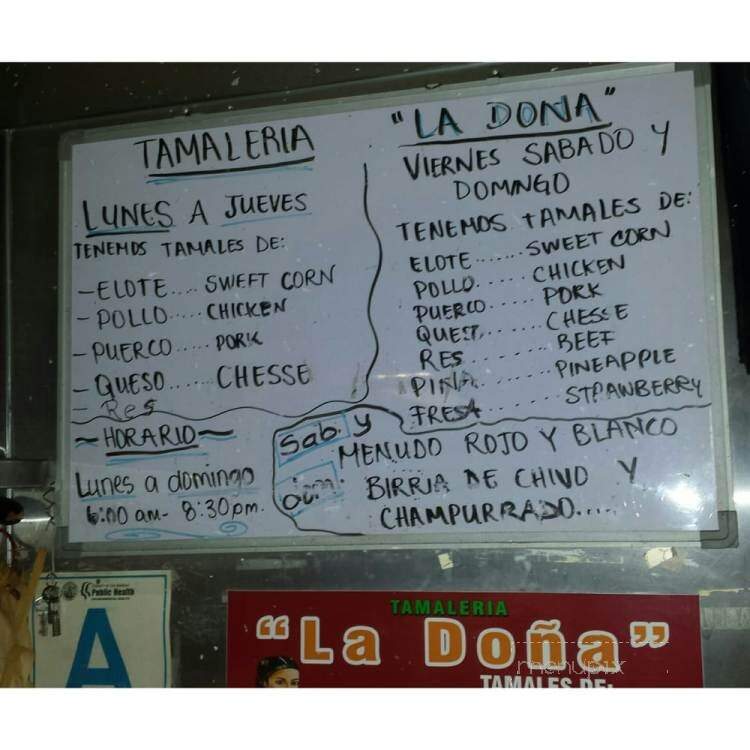 TAMALERIA
"LA DONA"
LUNES A JUEVES
TENEMOS TAMALES DE:
- ELOTE.... SWEET CORN
- POLLO..... CHICKEN
- PUERCO..... PORK
- QUESO...... CHESSE
- Res
VIERNES SABADO Y
DOMINGO
TENEMOS TAMALES DE:
ELOTE...... SWEET CORN
POLLO....... CHICKEN
PUERCO...... PORK
CHESSE
RES......... BEEF
PIÑA........ PINEAPPLE
FRESA STRAWBERRY
~HORARIO~
Lunes a domingo
6:00 am- 8:30pm.
Sab y
dom.
MENUDO ROJO Y BLANCO
BIRRIA DE CHIVO Y
CHAMPURRADO....
Public Health
A
TAMALERIA
"La Doña"
TAMALES DE:
menupix